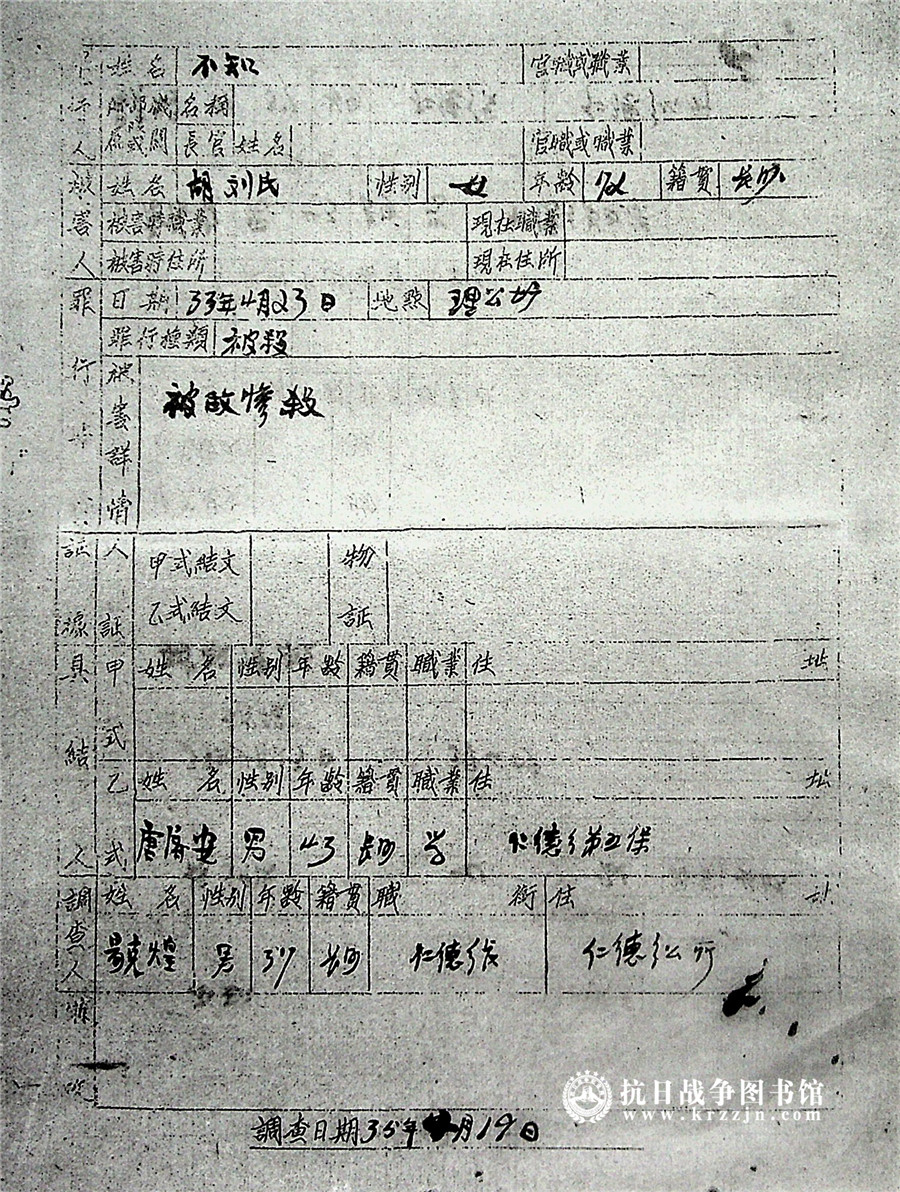 姓名 不知 官職或職業
行 所部或機 名稱
人 隊關 長官姓名 官職或職業
被 姓名 胡刘氏 性別 女 年齡 72 籍貫 長沙
害 被害時職業 現在職業
人 被害時住所 現在住所
罪 日期 33年4月23日 地點 理公
罪行種類 被殺
行 被害詳情 被敌惨殺
証 人 甲式結文 物
據 証 乙式結文 証
具 甲 姓名 性別 年齡 籍貫 職業 住址
結 式
乙 姓名 性別 年齡 籍貫 職業 住址
人 式 唐 安 男 43 長沙 仁德 第五保
調 姓名 性別 年齡 籍貫 職銜 住
查 克煌 男 37 長沙 仁德 仁德 公所
人
調查日期35年 月19日
抗日战争图书馆
www.krzzjn.com